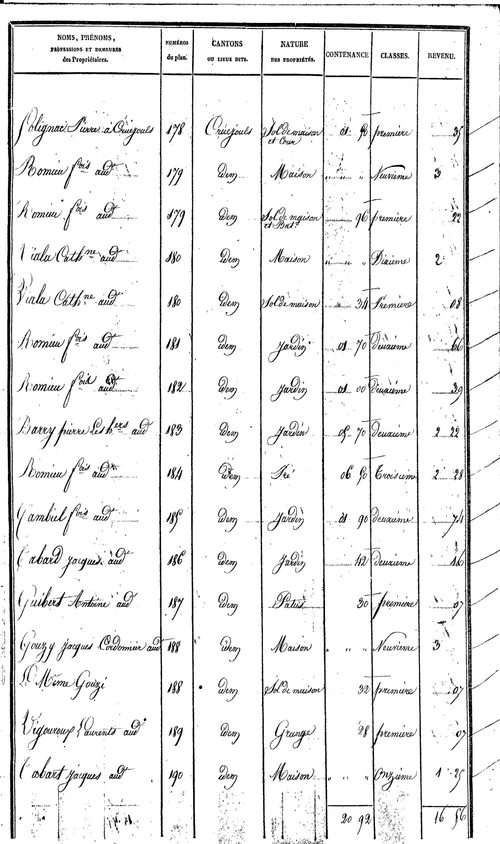 NOMS, PRÉNOMS, PROFESSIONS ET DEMEURES des Propriétaires. | NUMÉROS du plan. | CANTONS OU LIEUX DITS. | NATURE DES PROPRIÉTÉS. | CONTENANCE. | CLASSES. | REVENU.
Polignac Pierre à Cruejouls 178 Cruejouls Sol de maison et Cour 01 90 première 35
Romieu fois aud 179 idem Maison " " " Neuvième 3
Romieu fois aud 179 idem Sol de maison et Bat. 96 première 22
Viala Cathne aud 180 idem Maison " " " Dixième 2
Viala Cathne aud 180 idem Sol de maison " 34 Première 08
Romieu fois aud 181 idem Jardin 01 70 deuxième 66
Romieu fois aud 182 idem Jardin 01 00 deuxième 39
Barry pierre les hers aud 183 idem Jardin 05 70 deuxième 2 22
Romieu fois aud 184 idem Pré 06 50 Troisième 2 28
Gambiel fois aud 185 idem Jardin 01 90 deuxième 74
Cabard jacques aud 186 idem Jardin 42 deuxième 16
Guibert Antoine aud 187 idem Patus 30 première 07
Gouzy jacques Cordonnier aud 188 idem Maison " " " Neuvième 3
Le Même Gouzi 188 idem Sol de maison 32 première 07
Vigouroux Laurents aud 189 idem Grange 28 première 07
Cabart jacques aud 190 idem Maison " " " Onzième 1 25
20 92 16 56